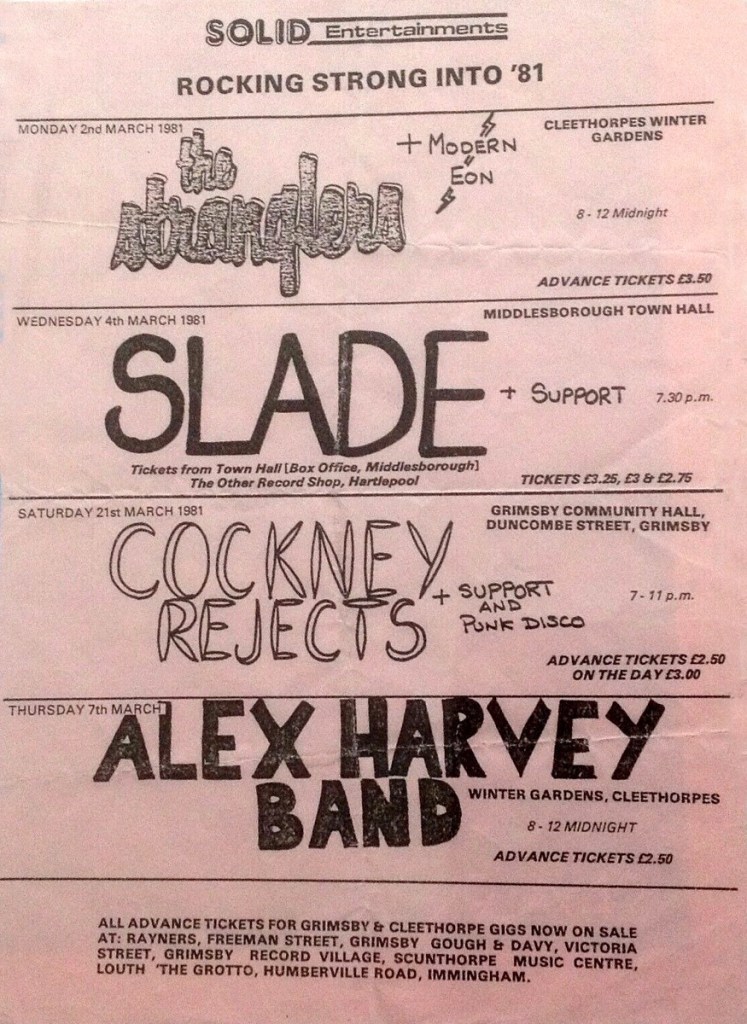 SOLID Entertainments
ROCKING STRONG INTO '81
MONDAY 2nd MARCH 1981
the stranglers
+ MODERN EON
CLEETHORPES WINTER
GARDENS
8 - 12 Midnight
ADVANCE TICKETS £3.50
WEDNESDAY 4th MARCH 1981
MIDDLESBOROUGH TOWN HALL
SLADE
+ SUPPORT
7.30 p.m.
Tickets from Town Hall [Box Office, Middlesborough]
The Other Record Shop, Hartlepool
TICKETS £3.25, £3 & £2.75
SATURDAY 21st MARCH 1981
GRIMSBY COMMUNITY HALL,
DUNCOMBE STREET, GRIMSBY
COCKNEY
REJECTS
+ SUPPORT
AND
PUNK DISCO
7 - 11 p.m.
ADVANCE TICKETS £2.50
ON THE DAY £3.00
THURSDAY 7th MARCH
ALEX HARVEY
BAND
WINTER GARDENS, CLEETHORPES
8 - 12 MIDNIGHT
ADVANCE TICKETS £2.50
ALL ADVANCE TICKETS FOR GRIMSBY & CLEETHORPE GIGS NOW ON SALE
AT: RAYNERS, FREEMAN STREET, GRIMSBY GOUGH & DAVY, VICTORIA
STREET, GRIMSBY RECORD VILLAGE, SCUNTHORPE MUSIC CENTRE,
LOUTH 'THE GROTTO, HUMBERVILLE ROAD, IMMINGHAM.